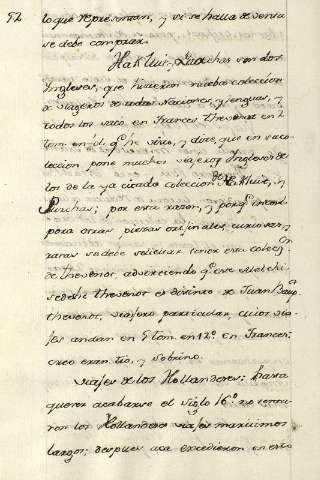 52
lo que representan, y si se halla de venta
se debe comprar.
Hakluit, Purchas son dos
Ingleses, que hicieron nueba coleccion
de viageros de todas naciones, y lenguas, y
todos los saco en Frances Thevenot en 2
tom. en fol. q.e he visto, y dize, que en su co-
leccion pone muchos viajeros Ingleses de
los de la ya citada coleccion de Hakluit, y
Purchas; por esta razon, y porq.e incor-
pora otras piezas originales curiosas, y
raras se debe solicitar tener esta colecc.n
de thevenot, advirtiendo q.e este Melchi-
sedech thevenot es distinto de Juan Baup.ta
thevenot, viajero particular, cuios via-
jes andan en 5 tom. en 12.o en Frances:
creo eran tio, y Sobrino.
viajes de los Hollandeses: hasta
querer acabarse el siglo 16.o no inten-
taron los Hollandeses viajes maritimos
largos; despues aca excedieron en esto